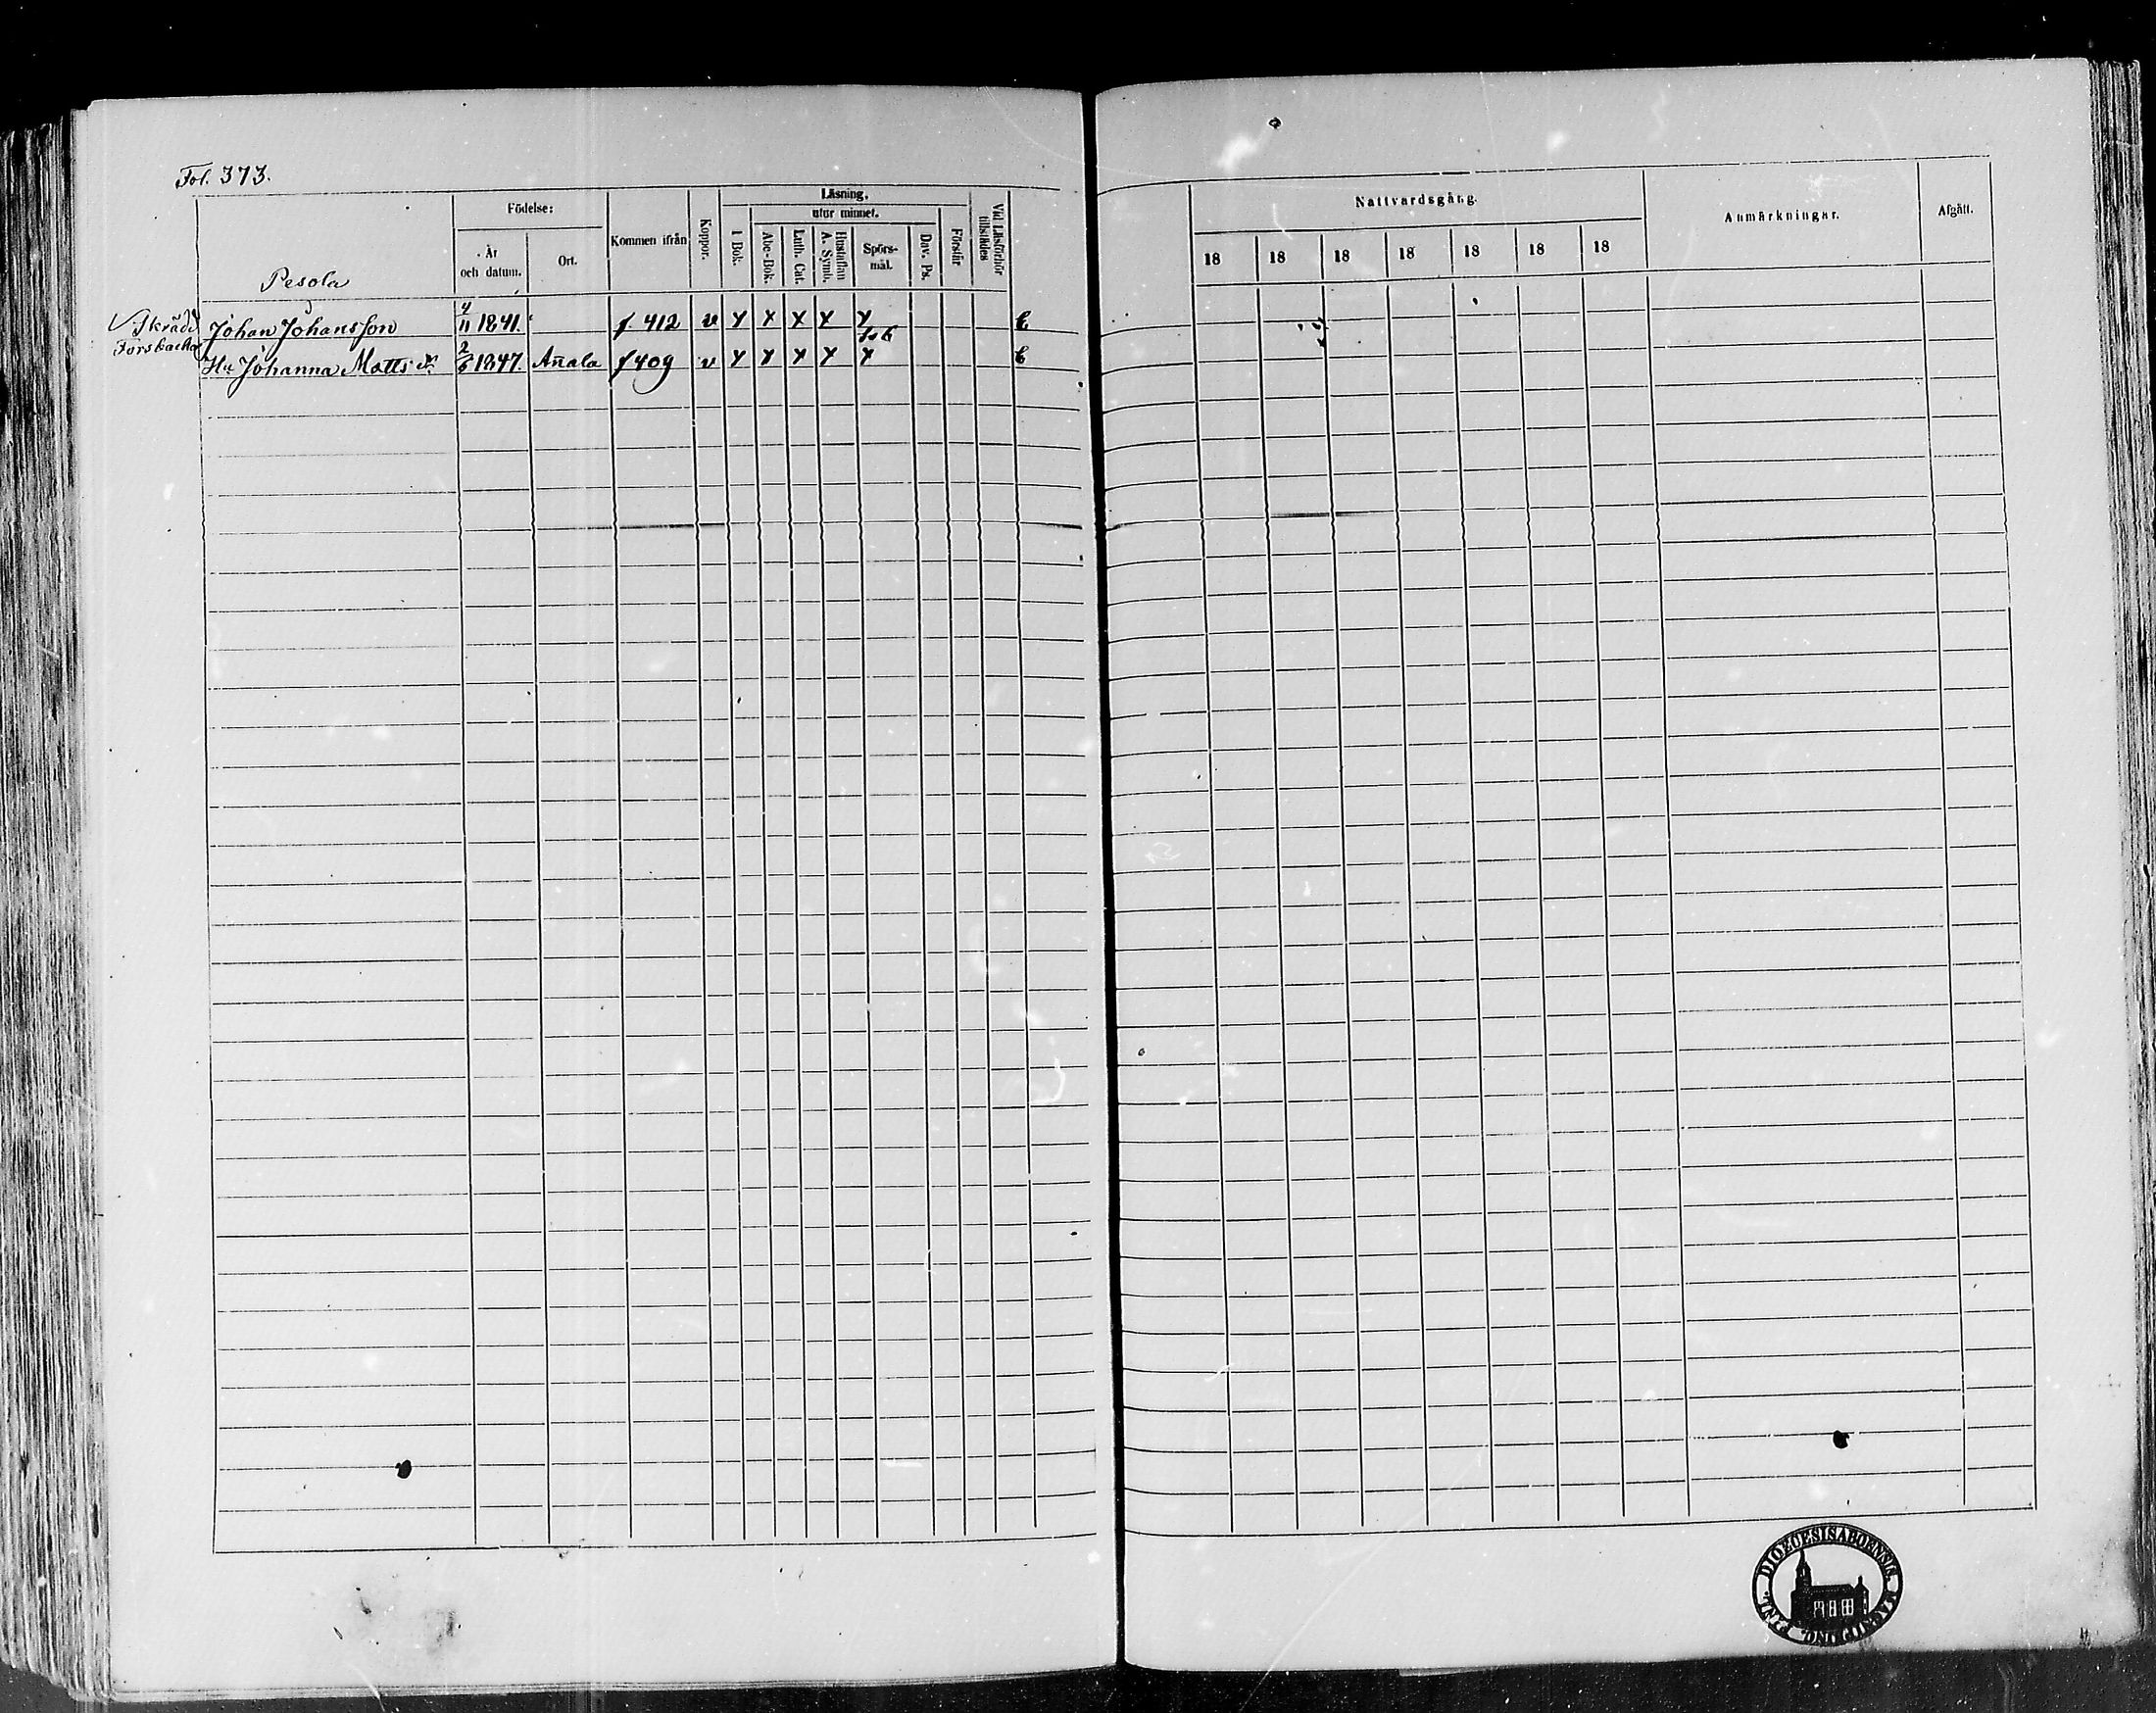 Fol. 373.
Födelse:
Kommen ifrån
Koppor.
Läsning,
utur minnet.
I Bok.
Abc-Bok.
Luth. Cat.
Hustaflan
A. Symb.
Spörs-
mål.
Dav. Ps.
Förstår
Vid Läsförhör
tillstädes
År
och datum.
Ort.
Nattvardsgång.
Anmärkningar.
Afgått.
18 18 18 18 18 18 18
Pesola
Skrädd Johan Johansson 4/11 1841. f. 412 v x x x x x
Forsbacka
Hu Johanna Matts dr 2/6 1847. Añala f 409 v x x x x x
DIOECESIS ABOENSIS. MAGNI PRINC. FINL.